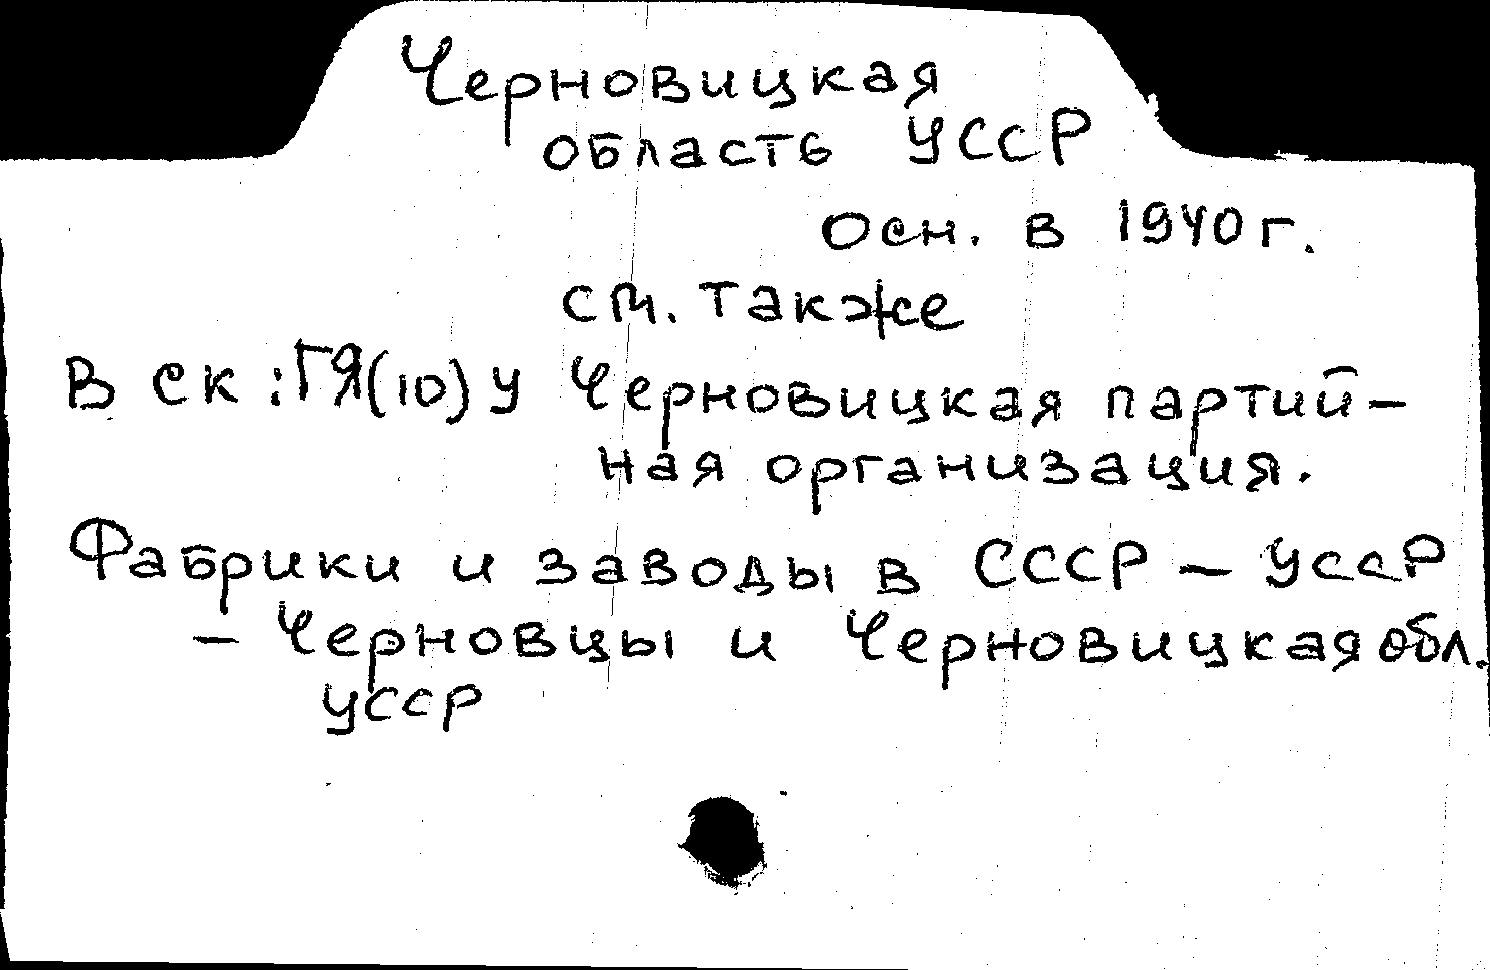 Черновицкая
область УССР
Осн. в 1940 г.
см. также
В СК :ГЯ(10)У Черновицкая партий-
ная организация.
Фабрики и заводы в СССР - УССР
- Черновцы и Черновицкая обл.
УССР